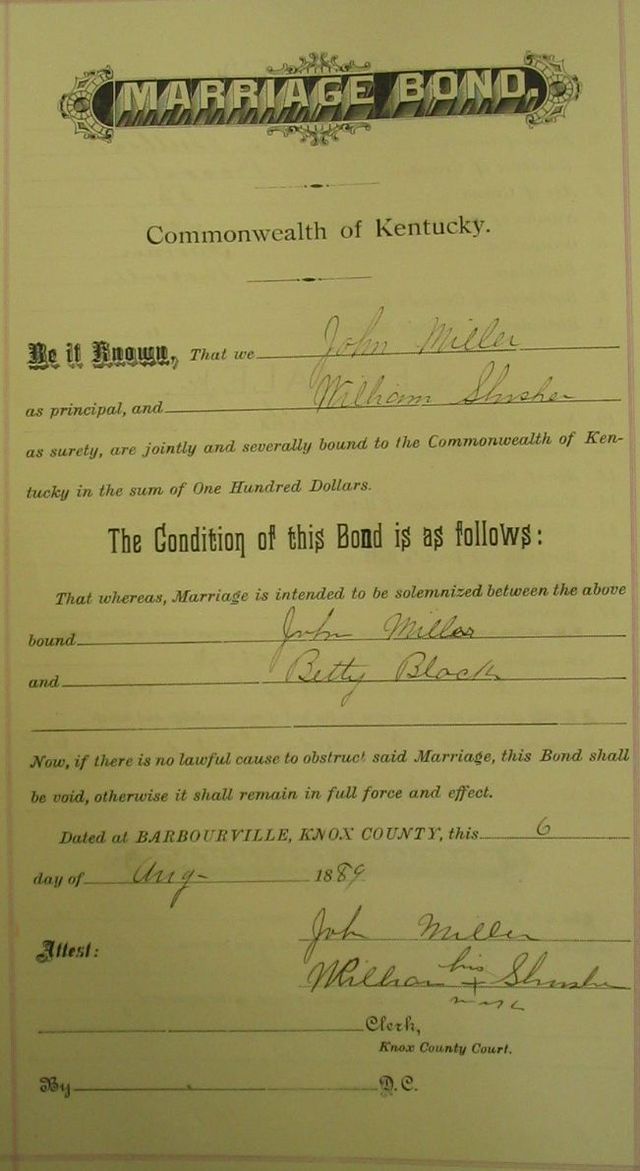 MARRIAGE BOND,
Commonwealth of Kentucky.
Be it Known, That we John Miller
as principal, and William Slusher
as surety, are jointly and severally bound to the Commonwealth of Ken-
tucky in the sum of One Hundred Dollars.
The Condition of this Bond is as follows:
That whereas, Marriage is intended to be solemnized between the above
bound John Miller
and Betty Black
Now, if there is no lawful cause to obstruct said Marriage, this Bond shall
be void, otherwise it shall remain in full force and effect.
Dated at BARBOURVILLE, KNOX COUNTY, this 6
day of Aug- 1889
John Miller
Attest:
his
William + Slusher
mark
Clerk,
Knox County Court.
By D.C.